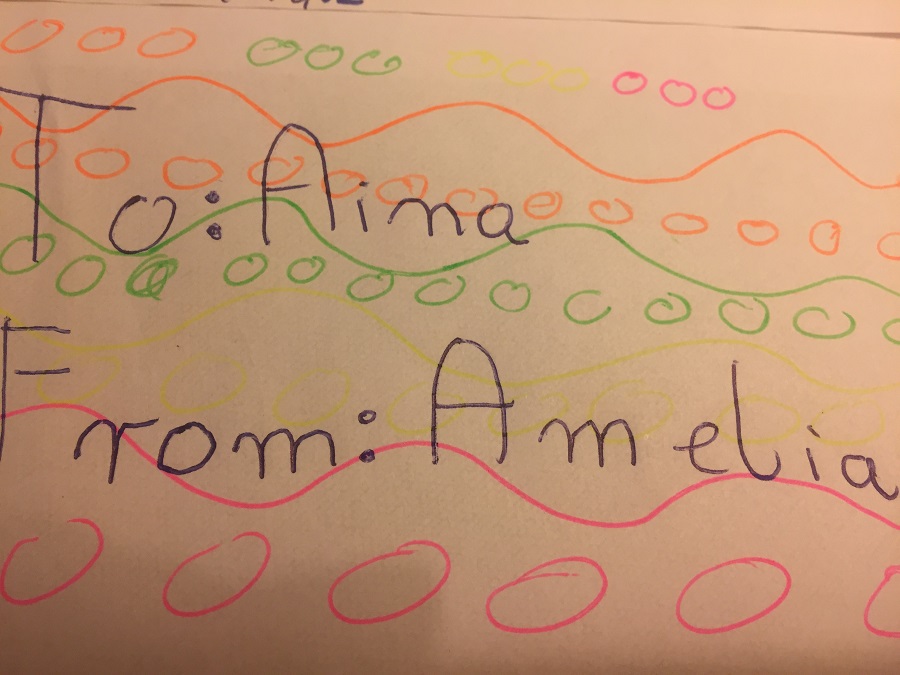 To: Aima
From: Amelia